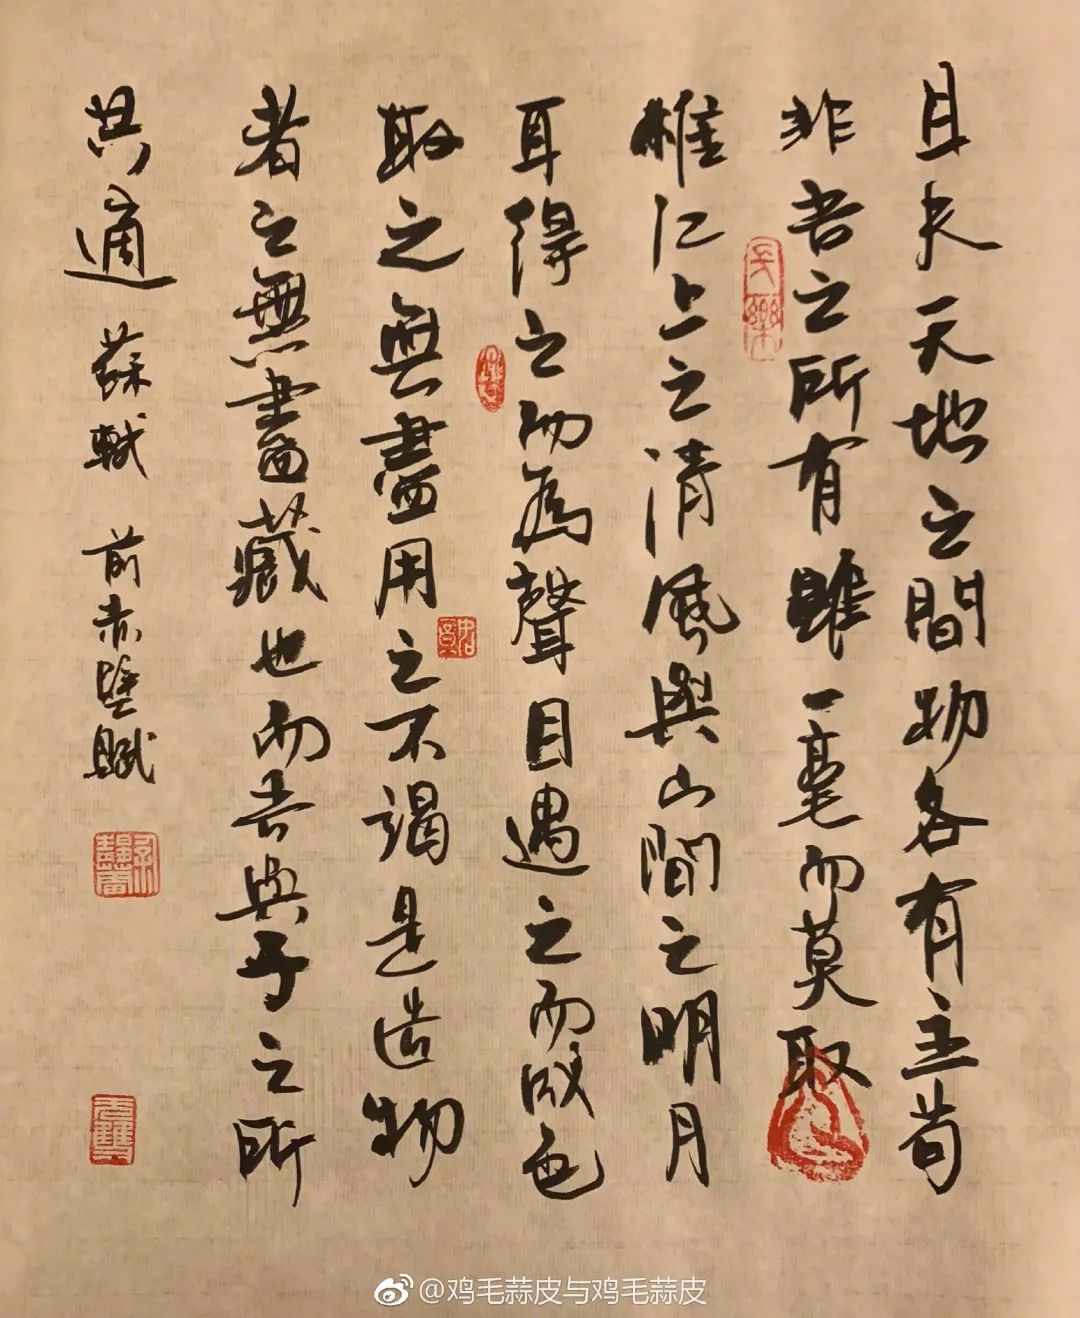 且夫天地之間物各有主苟
非吾之所有雖一毫而莫取
惟江上之清風與山間之明月
耳得之而為聲目遇之而成色
取之無盡用之不竭是造物
者之無盡藏也而吾與子之所
共適 蘇軾 前赤壁賦
@鸡毛蒜皮与鸡毛蒜皮